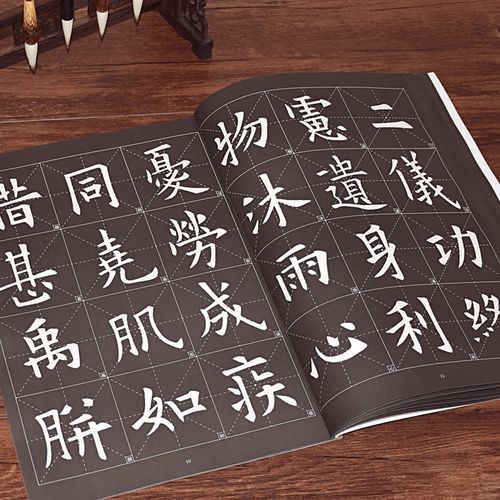 二儀功終
憲遺身利
物沐雨心
15
憂勞成疾
同堯肌如
腊甚禹胼
16